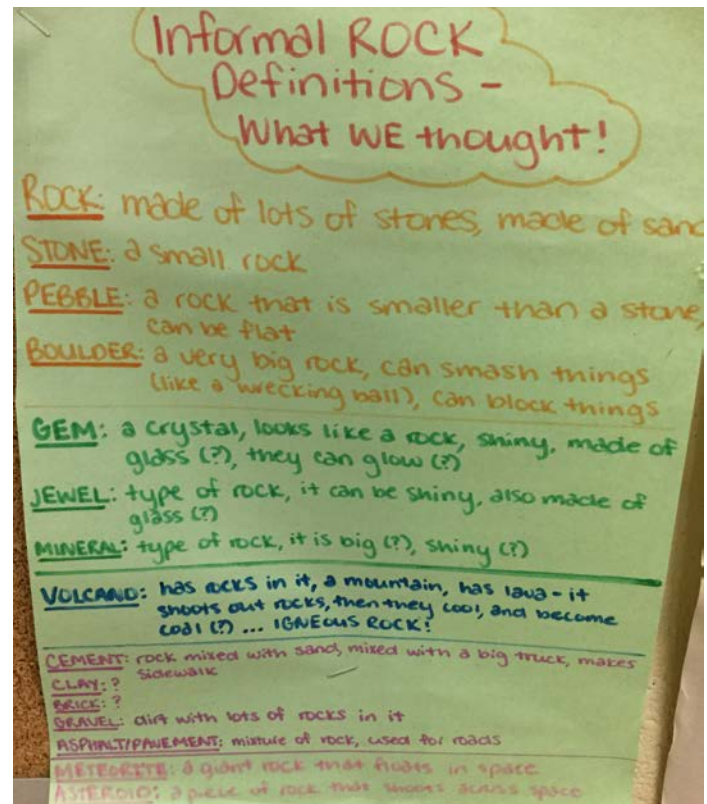 Informal ROCK
Definitions -
What WE thought!
ROCK: made of lots of stones, made of sand
STONE: a small rock
PEBBLE: a rock that is smaller than a stone,
can be flat
BOULDER: a very big rock, can smash things
(like a wrecking ball), can block things
GEM: a crystal, looks like a rock, shiny, made of
glass (?), they can glow (?)
JEWEL: type of rock, it can be shiny, also made of
glass (?)
MINERAL: type of rock, it is big (?), shiny (?)
VOLCANO: has rocks in it, a mountain, has lava - it
shoots out rocks, then they cool, and become
coal (?) ... IGNEOUS ROCK!
CEMENT: rock mixed with sand, mixed with a big truck, makes
sidewalk
CLAY: ?
BRICK: ?
GRAVEL: dirt with lots of rocks in it
ASPHALT/PAVEMENT: mixture of rock, used for roads
METEORITE: a giant rock that floats in space
ASTEROID: a piece of rock that shoots across space